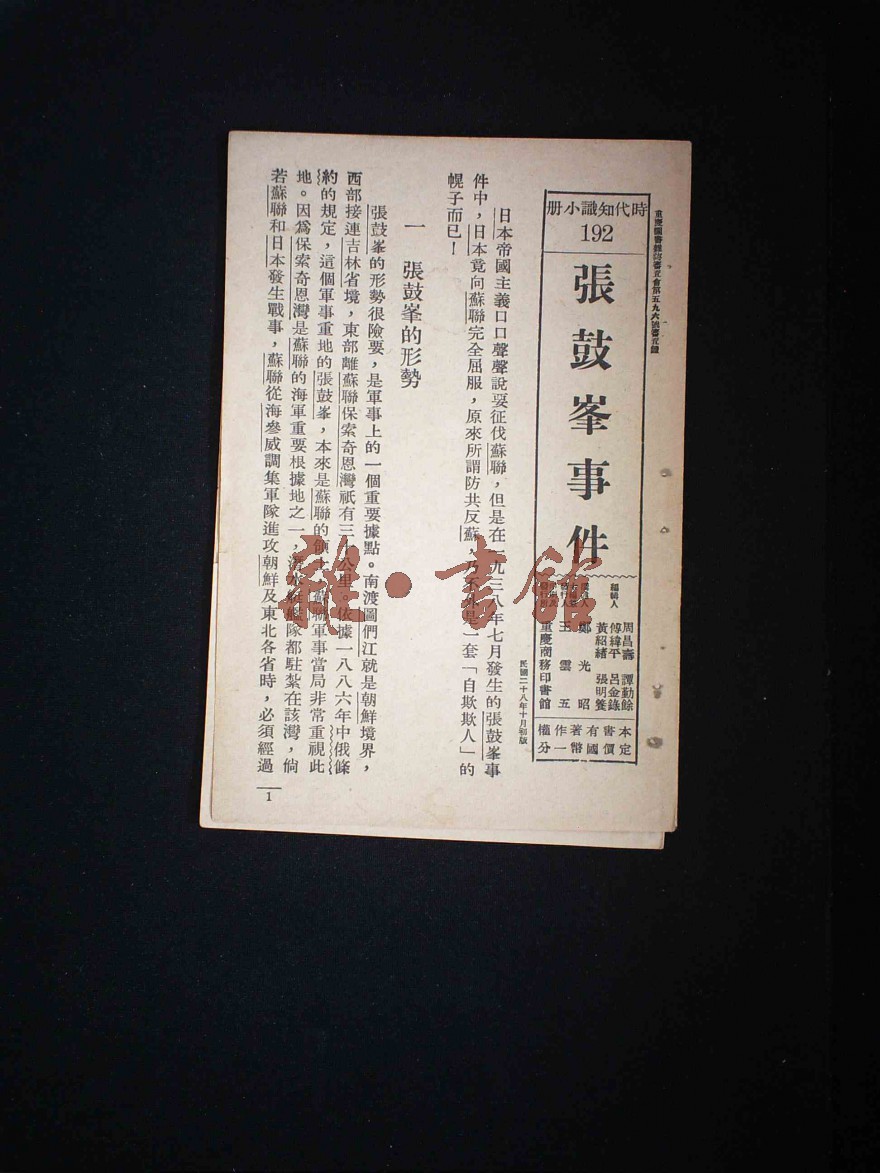 重慶圖書雜誌審查會第五九六號審查證
時代知識小册
192
張鼓峯事件
編輯人
周昌壽 譚勤餘
傅緯平 呂金錄
黃紹緒 張明養
鄭光昭
王雲五
重慶商務印書館
本書有著作權
定價國幣一分
民國二十八年十月初版
日本帝國主義口口聲聲說要征伐蘇聯，但是在一九三八年七月發生的張鼓峯事
件中，日本竟向蘇聯完全屈服，原來所謂防共反蘇，乃不外是一套「自欺欺人」的
幌子而已！
一 張鼓峯的形勢
張鼓峯的形勢很險要，是軍事上的一個重要據點。南渡圖們江就是朝鮮境界，
西部接連吉林省境，東部離蘇聯保索奇恩灣祇有三十公里。依據一八八六年中俄條
約的規定，這個軍事重地的張鼓峯，本來是蘇聯的領土，蘇聯軍事當局非常重視此
地。因爲保索奇恩灣是蘇聯的海軍重要根據地之一，潛水艇艦隊都駐紮在該灣，倘
若蘇聯和日本發生戰事，蘇聯從海參威調集軍隊進攻朝鮮及東北各省時，必須經過
1
雜·書館